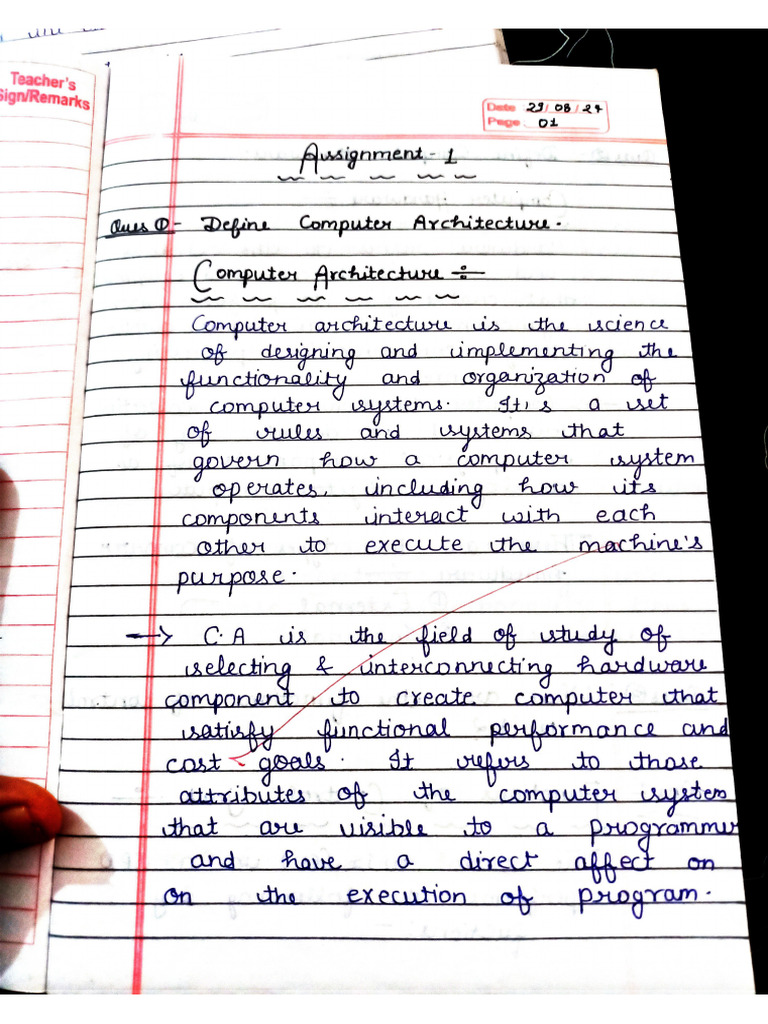 Teacher's
Sign/Remarks
Date 29/08/24
Page 01
Assignment - 1
Ques ① - Define Computer Architecture.
Computer Architecture ÷
Computer architecture is the science
of designing and implementing the
functionality and organization of
computer systems. It's a set
of rules and systems that
govern how a computer system
operates, including how its
components interact with each
other to execute the machine's
purpose.
→ C.A is the field of study of
selecting & interconnecting hardware
component to create computer that
satisfy functional performance and
cost goals. It refers to those
attributes of the computer system
that are visible to a programmer
and have a direct affect on
on the execution of program.